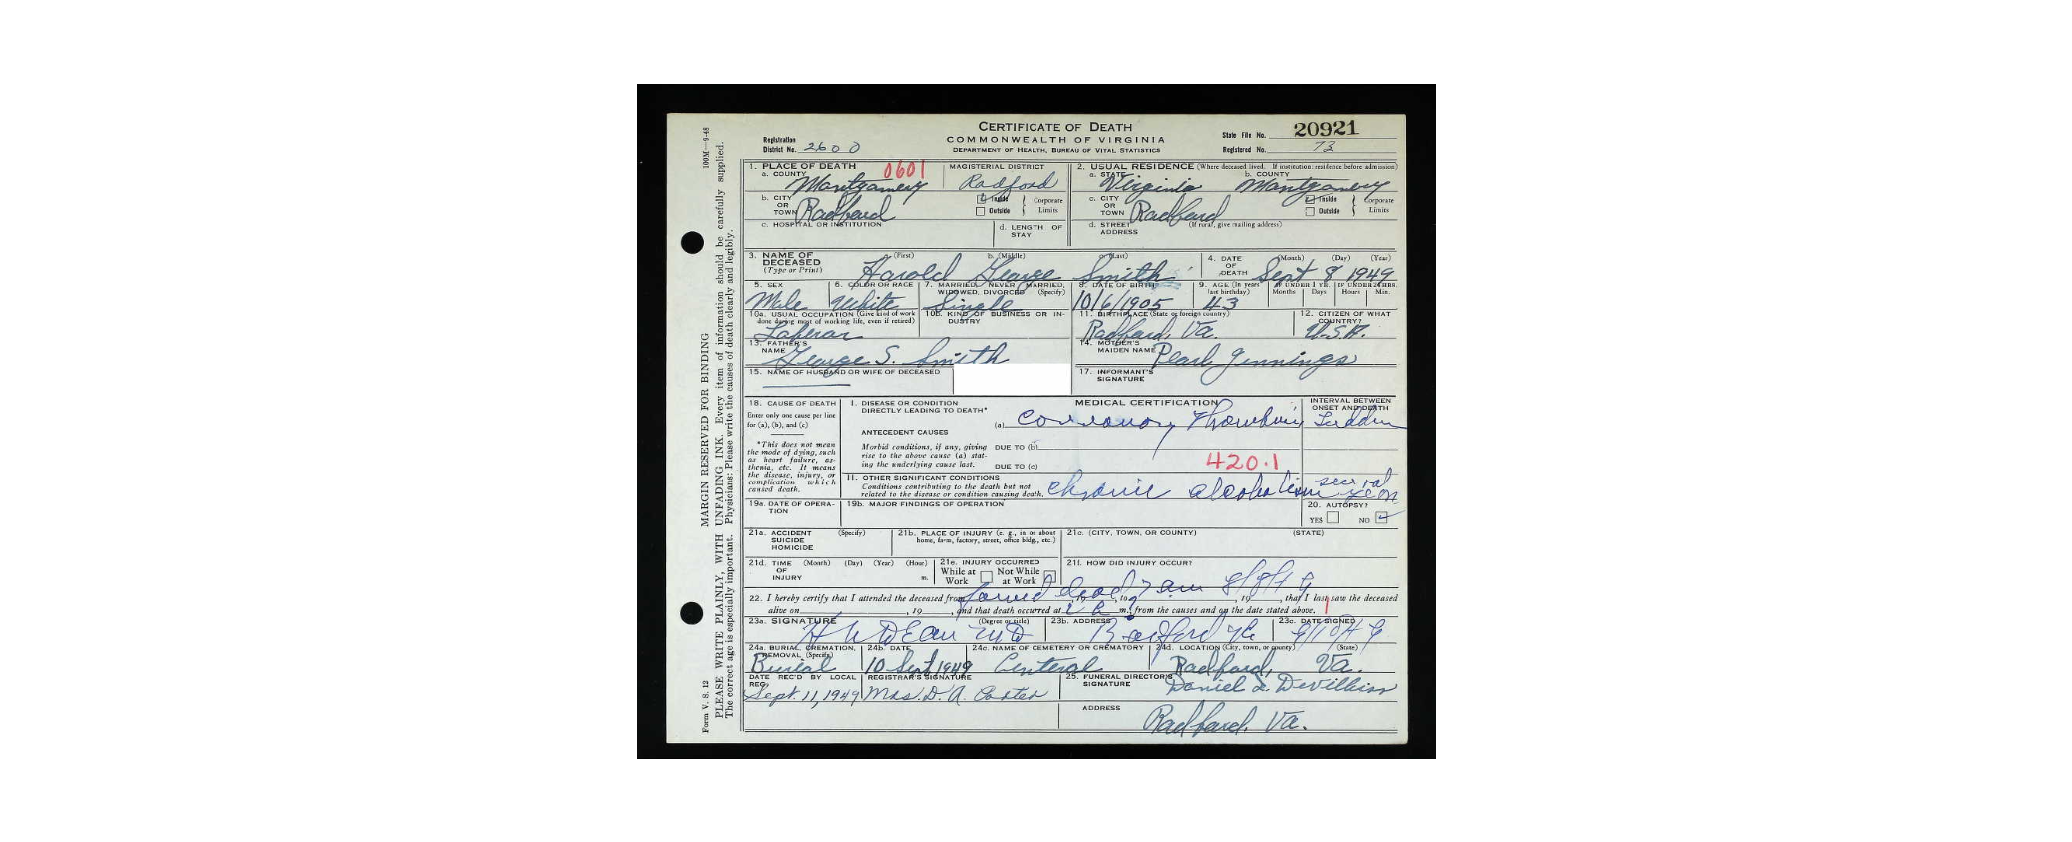 CERTIFICATE OF DEATH
COMMONWEALTH OF VIRGINIA
DEPARTMENT OF HEALTH, BUREAU OF VITAL STATISTICS
Registration District No. 2600
State File No. 20921
Registered No. 73
1. PLACE OF DEATH 0601
a. COUNTY Montgomery
MAGISTERIAL DISTRICT Radford
2. USUAL RESIDENCE (Where deceased lived. If institution: residence before admission)
a. STATE Virginia b. COUNTY Montgomery
b. CITY OR TOWN Radford Inside Outside Corporate Limits
c. CITY OR TOWN Radford Inside Outside Corporate Limits
c. HOSPITAL OR INSTITUTION
d. LENGTH OF STAY
d. STREET ADDRESS (If rural, give mailing address)
3. NAME OF DECEASED (Type or Print) a. (First) b. (Middle) c. (Last)
Harold George Smith
4. DATE OF DEATH (Month) (Day) (Year)
Sept 8 1949
5. SEX Male
6. COLOR OR RACE White
7. MARRIED, NEVER MARRIED, WIDOWED, DIVORCED (Specify) Single
8. DATE OF BIRTH 10/6/1905
9. AGE (In years last birthday) 43
IF UNDER 1 YR. Months Days IF UNDER 24 HRS. Hours Min.
10a. USUAL OCCUPATION (Give kind of work done during most of working life, even if retired)
10b. KIND OF BUSINESS OR INDUSTRY
11. BIRTHPLACE (State or foreign country) Radford, Va.
12. CITIZEN OF WHAT COUNTRY? U.S.A.
13. FATHER'S NAME George S. Smith
14. MOTHER'S MAIDEN NAME Pearl Jennings
15. NAME OF HUSBAND OR WIFE OF DECEASED
17. INFORMANT'S SIGNATURE
18. CAUSE OF DEATH
Enter only one cause per line for (a), (b), and (c)
*This does not mean the mode of dying, such as heart failure, asthenia, etc. It means the disease, injury, or complication which caused death.
MEDICAL CERTIFICATION
INTERVAL BETWEEN ONSET AND DEATH
I. DISEASE OR CONDITION DIRECTLY LEADING TO DEATH*
(a) Corronory Thombosis Sudden
ANTECEDENT CAUSES
Morbid conditions, if any, giving rise to the above cause (a) stating the underlying cause last.
DUE TO (b)
DUE TO (c)
420.1
II. OTHER SIGNIFICANT CONDITIONS
Conditions contributing to the death but not related to the disease or condition causing death.
Chronic alcoholism several years
19a. DATE OF OPERATION
19b. MAJOR FINDINGS OF OPERATION
20. AUTOPSY? YES NO
21a. ACCIDENT SUICIDE HOMICIDE (Specify)
21b. PLACE OF INJURY (e. g., in or about home, farm, factory, street, office bldg., etc.)
21c. (CITY, TOWN, OR COUNTY) (STATE)
21d. TIME OF INJURY (Month) (Day) (Year) (Hour) m.
21e. INJURY OCCURRED While at Work Not While at Work
21f. HOW DID INJURY OCCUR?
found dead 7 am 9/8/49
22. I hereby certify that I attended the deceased from , 19 , to , 19 , that I last saw the deceased
alive on , 19 , and that death occurred at 2 a m., from the causes and on the date stated above.
23a. SIGNATURE (Degree or title) Dean MD
23b. ADDRESS Radford Va
23c. DATE SIGNED 9/10/49
24a. BURIAL, CREMATION, REMOVAL (Specify) Burial
24b. DATE 10 Sept 1949
24c. NAME OF CEMETERY OR CREMATORY Centeral
24d. LOCATION (City, town, or county) (State) Radford, Va.
DATE REC'D BY LOCAL REG. Sept. 11, 1949
REGISTRAR'S SIGNATURE Mrs. D. A. Porter
25. FUNERAL DIRECTOR'S SIGNATURE Daniel L. DeVilbiss
ADDRESS Radford, Va.
100M—9-48
Form V. S. 12
MARGIN RESERVED FOR BINDING
PLEASE WRITE PLAINLY, WITH UNFADING INK. Every item of information should be carefully supplied.
The correct age is especially important. Physicians: Please write the causes of death clearly and legibly.